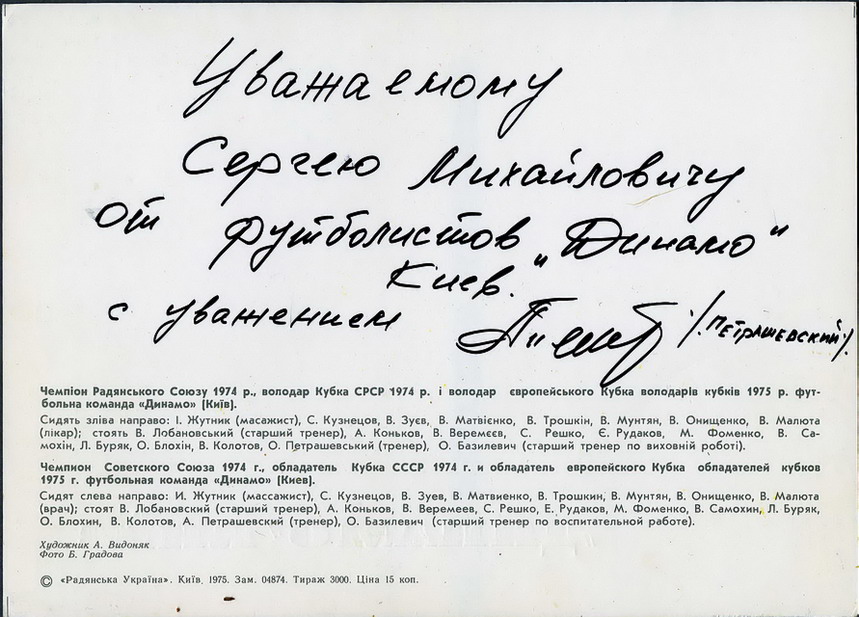 Уважаемому
Сергею Михайловичу
от футболистов „Динамо"
Киев.
с уважением /Петрашевский/.
Чемпіон Радянського Союзу 1974 р., володар Кубка СРСР 1974 р. і володар європейського Кубка володарів кубків 1975 р. фут-
больна команда «Динамо» [Київ].
Сидять зліва направо: І. Жутник (масажист), С. Кузнецов, В. Зуєв, В. Матвієнко, В. Трошкін, В. Мунтян, В. Онищенко, В. Малюта
(лікар); стоять В. Лобановський (старший тренер), А. Коньков, В. Веремєєв, С. Решко, Є. Рудаков, М. Фоменко, В. Са-
мохін, Л. Буряк, О. Блохін, В. Колотов, О. Петрашевський (тренер), О. Базилевич (старший тренер по виховній роботі).
Чемпион Советского Союза 1974 г., обладатель Кубка СССР 1974 г. и обладатель европейского Кубка обладателей кубков
1975 г. футбольная команда «Динамо» [Киев].
Сидят слева направо: И. Жутник (массажист), С. Кузнецов, В. Зуев, В. Матвиенко, В. Трошкин, В. Мунтян, В. Онищенко, В. Малюта
(врач); стоят В. Лобановский (старший тренер), А. Коньков, В. Веремеев, С. Решко, Е. Рудаков, М. Фоменко, В. Самохин, Л. Буряк,
О. Блохин, В. Колотов, А. Петрашевский (тренер), О. Базилевич (старший тренер по воспитательной работе).
Художник А. Видоняк
Фото Б. Градова
© «Радянська Україна». Київ. 1975. Зам. 04874. Тираж 3000. Ціна 15 коп.